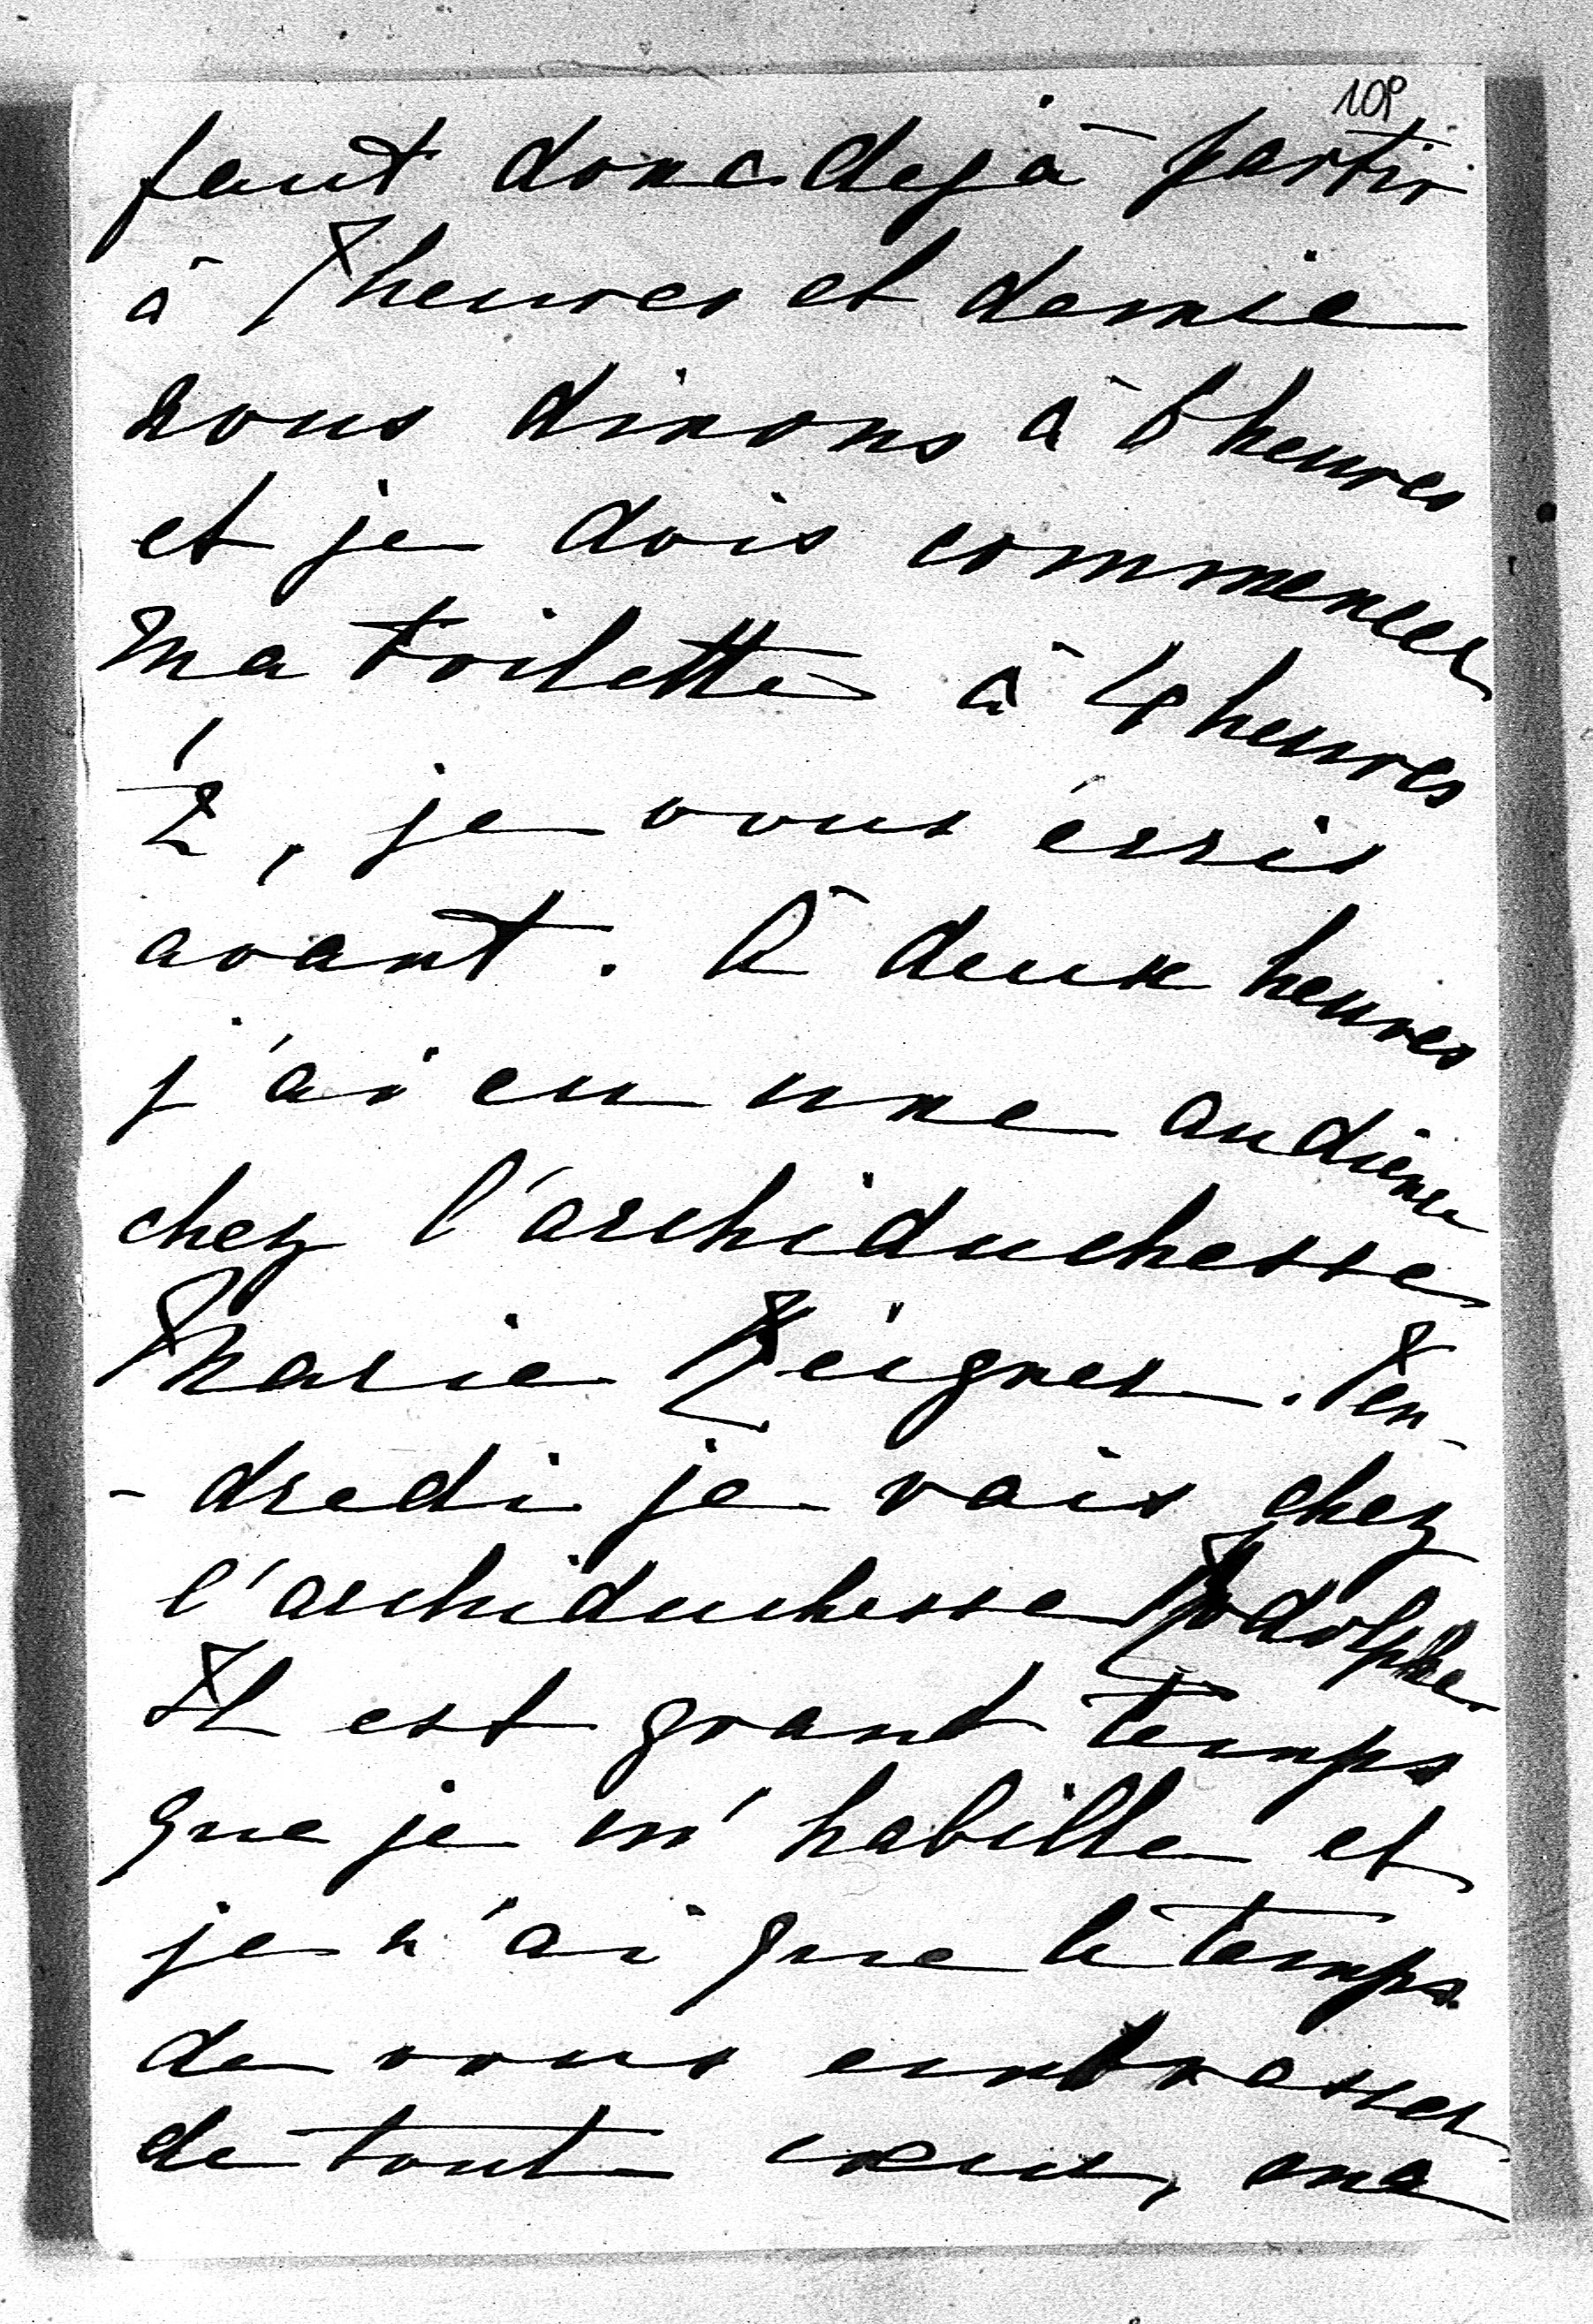 109
faut donc dejà partir
à 7 heures et demie
nous dinons à 6 heures
et je dois commencer
ma toilette à 4 heures
1/2, je vous écris
avant. À deux heures
j'ai eu une audience
chez l'archiduchesse
Marie Reigner. Ven-
- dredi je vais chez
l'archiduchesse Rodolphe.
Il est grand temps
que je m'habille et
je n'ai que le temps
de vous embrasser
de tout cœur, ma